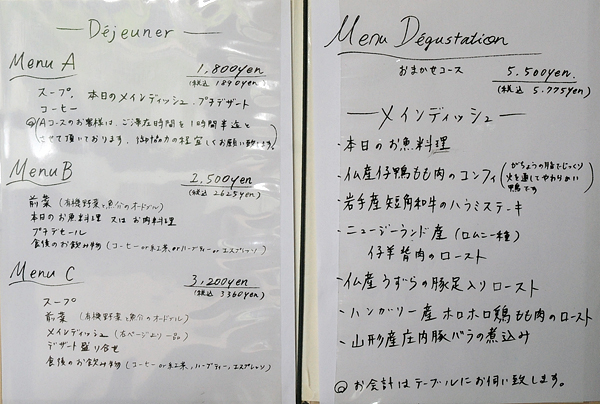 Déjeuner
Menu A
1,800yen
(税込 1890yen)
スープ. 本日のメインディッシュ. プチデザート
コーヒー
◎(Aコースのお客様は、ご滞在時間を1時間半迄と
させて頂いております。御協力の程宜しくお願い致します。)
Menu B
2,500yen
(税込 2625yen)
前菜 (有機野菜と魚介のオードブル)
本日のお魚料理 又は お肉料理
プチデセール
食後のお飲み物 (コーヒーor紅茶orハーブティーorエスプレッソ)
Menu C
3,200yen
(税込 3360yen)
スープ
前菜 (有機野菜と魚介のオードブル)
メインディッシュ (右ページより一品)
デザート盛り合せ
食後のお飲み物 (コーヒーor紅茶、ハーブティー、エスプレッソ)
Menu Dégustation
おまかせコース
5.500yen.
(税込 5.775yen)
メインディッシュ
・本日のお魚料理
・仏産仔鴨もも肉のコンフィ (がちょうの脂でじっくり
火を通してやわらかい
鴨です)
・岩手産短角和牛のハラミステーキ
・ニュージーランド産 (ロムニー種)
仔羊背肉のロースト
・仏産うずらの豚足入りロースト
・ハンガリー産ホロホロ鶏もも肉のロースト
・山形産庄内豚バラの煮込み
◎ お会計はテーブルにお伺い致します。